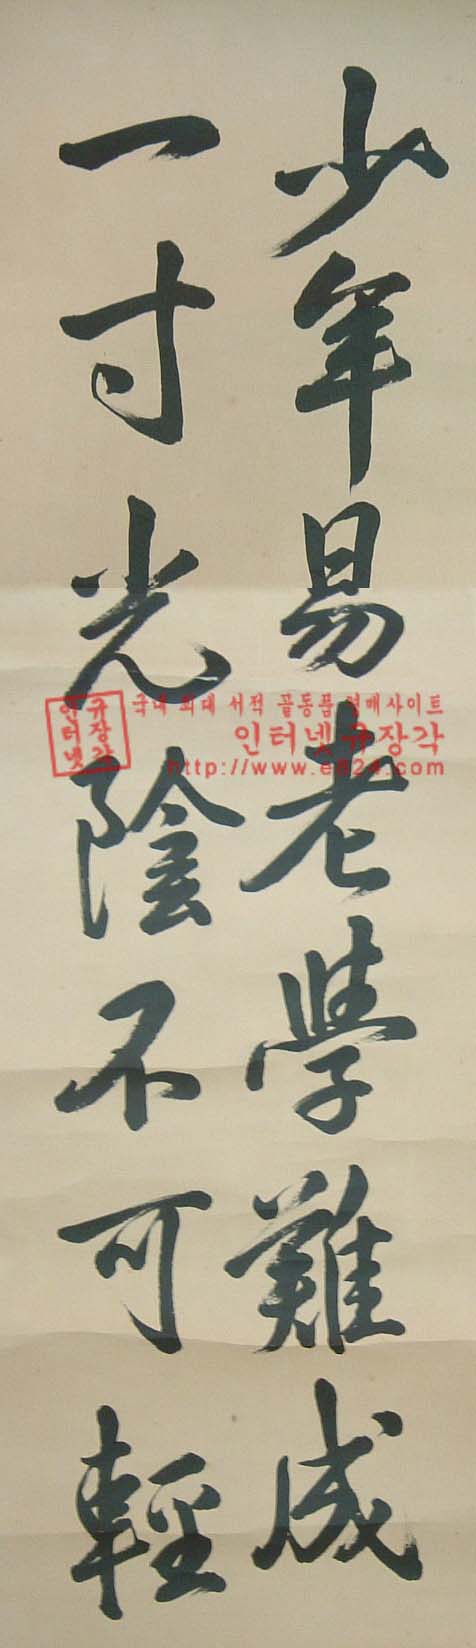 少年易老學難成
一寸光陰不可輕
국내 최대 서적 골동품 경매사이트
인터넷규장각
http://www.e824.com
인터넷
규장각